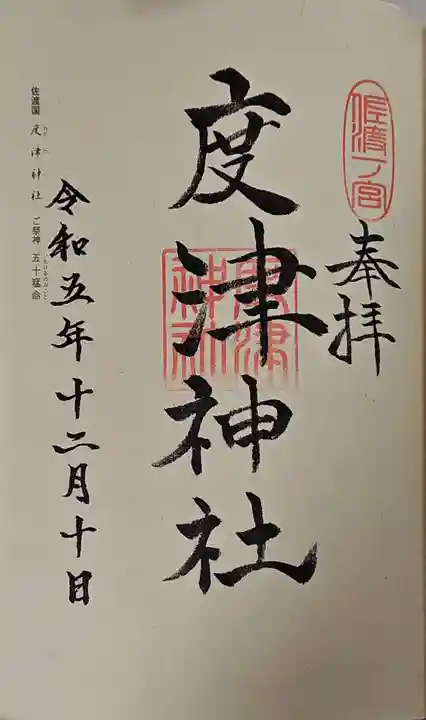 佐渡一ノ宮
奉拝
度津神社
度津神社
令和五年十二月十日
佐渡国 度津神社 ご祭神 五十猛命